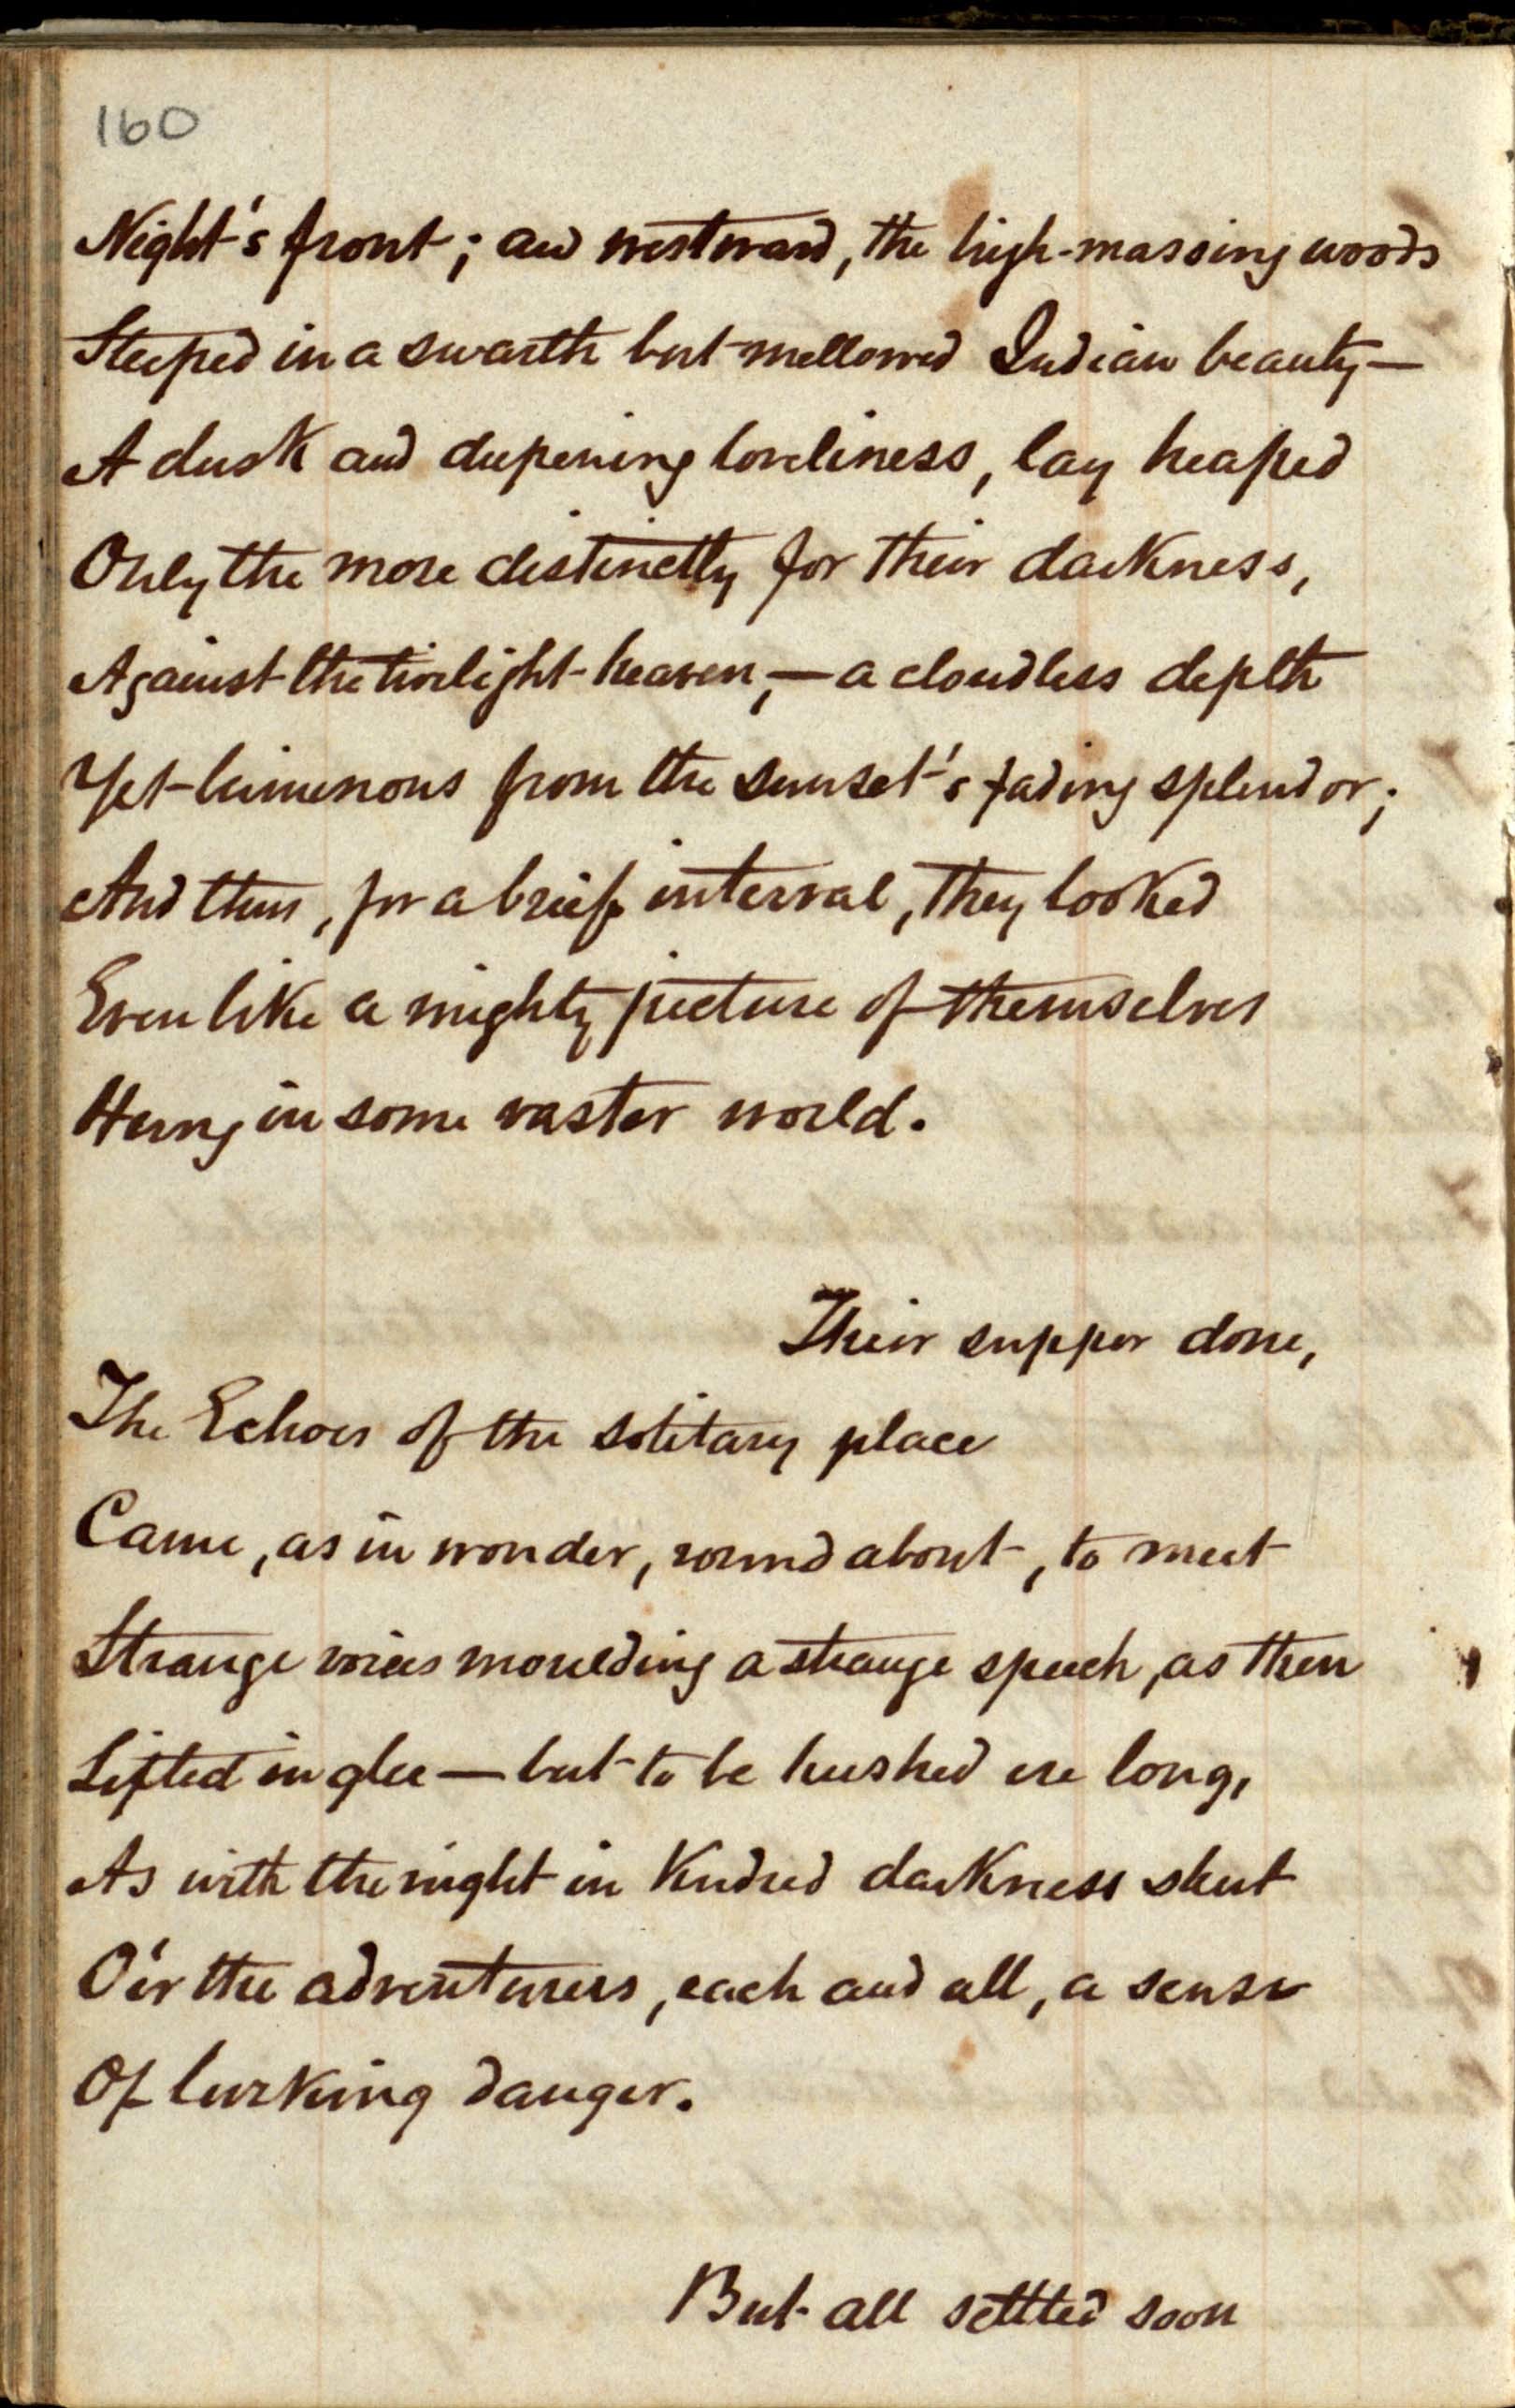 160
Night's front; and westward, the high-massing woods
Steeped in a swarth but mellowed Indian beauty—
A dusk and deepening loveliness, lay heaped
Only the more distinctly for their darkness,
Against the twilight heaven,—a cloudless depth
Yet luminous from the sunset's fading splendor;
And thus, for a brief interval, they looked
Even like a mighty picture of themselves
Hung in some vaster world.
Their supper done,
The Echoes of the solitary place
Came, as in wonder, round about, to meet
Strange voices moulding a strange speech, as then
Lifted in glee—but to be hushed ere long,
As with the night in kindred darkness shut
O'er the adventurers, each and all, a sense
Of lurking danger.
But all settled soon